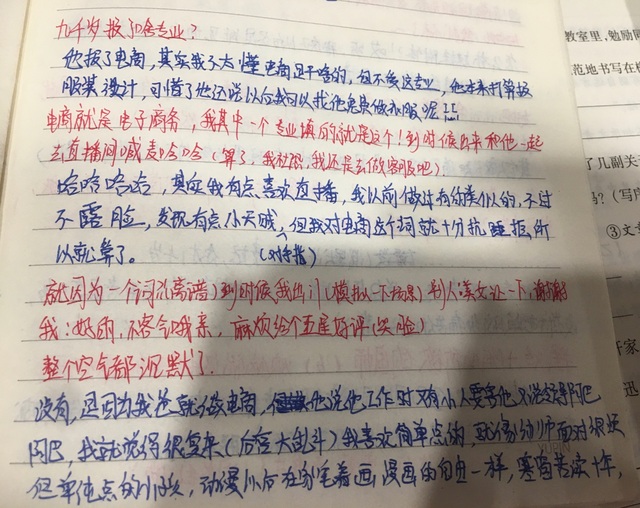 九千岁报了啥专业？
他报了电商，其实我不大懂电商是干啥的，但不爱这专业，他本来打算报
服装设计，可惜了他还说以后我可以找他免费做衣服呢
电商就是电子商务，我其中一个专业填的就是这个！到时候出来和他一起
去直播间喊麦哈哈（算了，我社恐，我还是去做客服吧）.
哈哈哈哈，其实我有点喜欢直播，我以前做过有的类似的，不过
不露脸，发现有点小天赋，但我对电商这个词就十分抗拒，所
以就算了。（对手指）
就因为一个词（离谱）到时候我出门（模拟一下场景）别人：美女让一下，谢谢
我：好的，不客气哦亲，麻烦给个五星好评（笑脸）
整个空气都沉默了.
没有，是因为我爸就做电商，他说他工作时又有小人要害他又说
阿巴，我就觉得很复杂（后宫大乱斗）我喜欢简单点的，就像幼师面对很
但单纯点的小孩，动漫
教室里，勉励同
范地书写在横
了几副关
（写序
③文